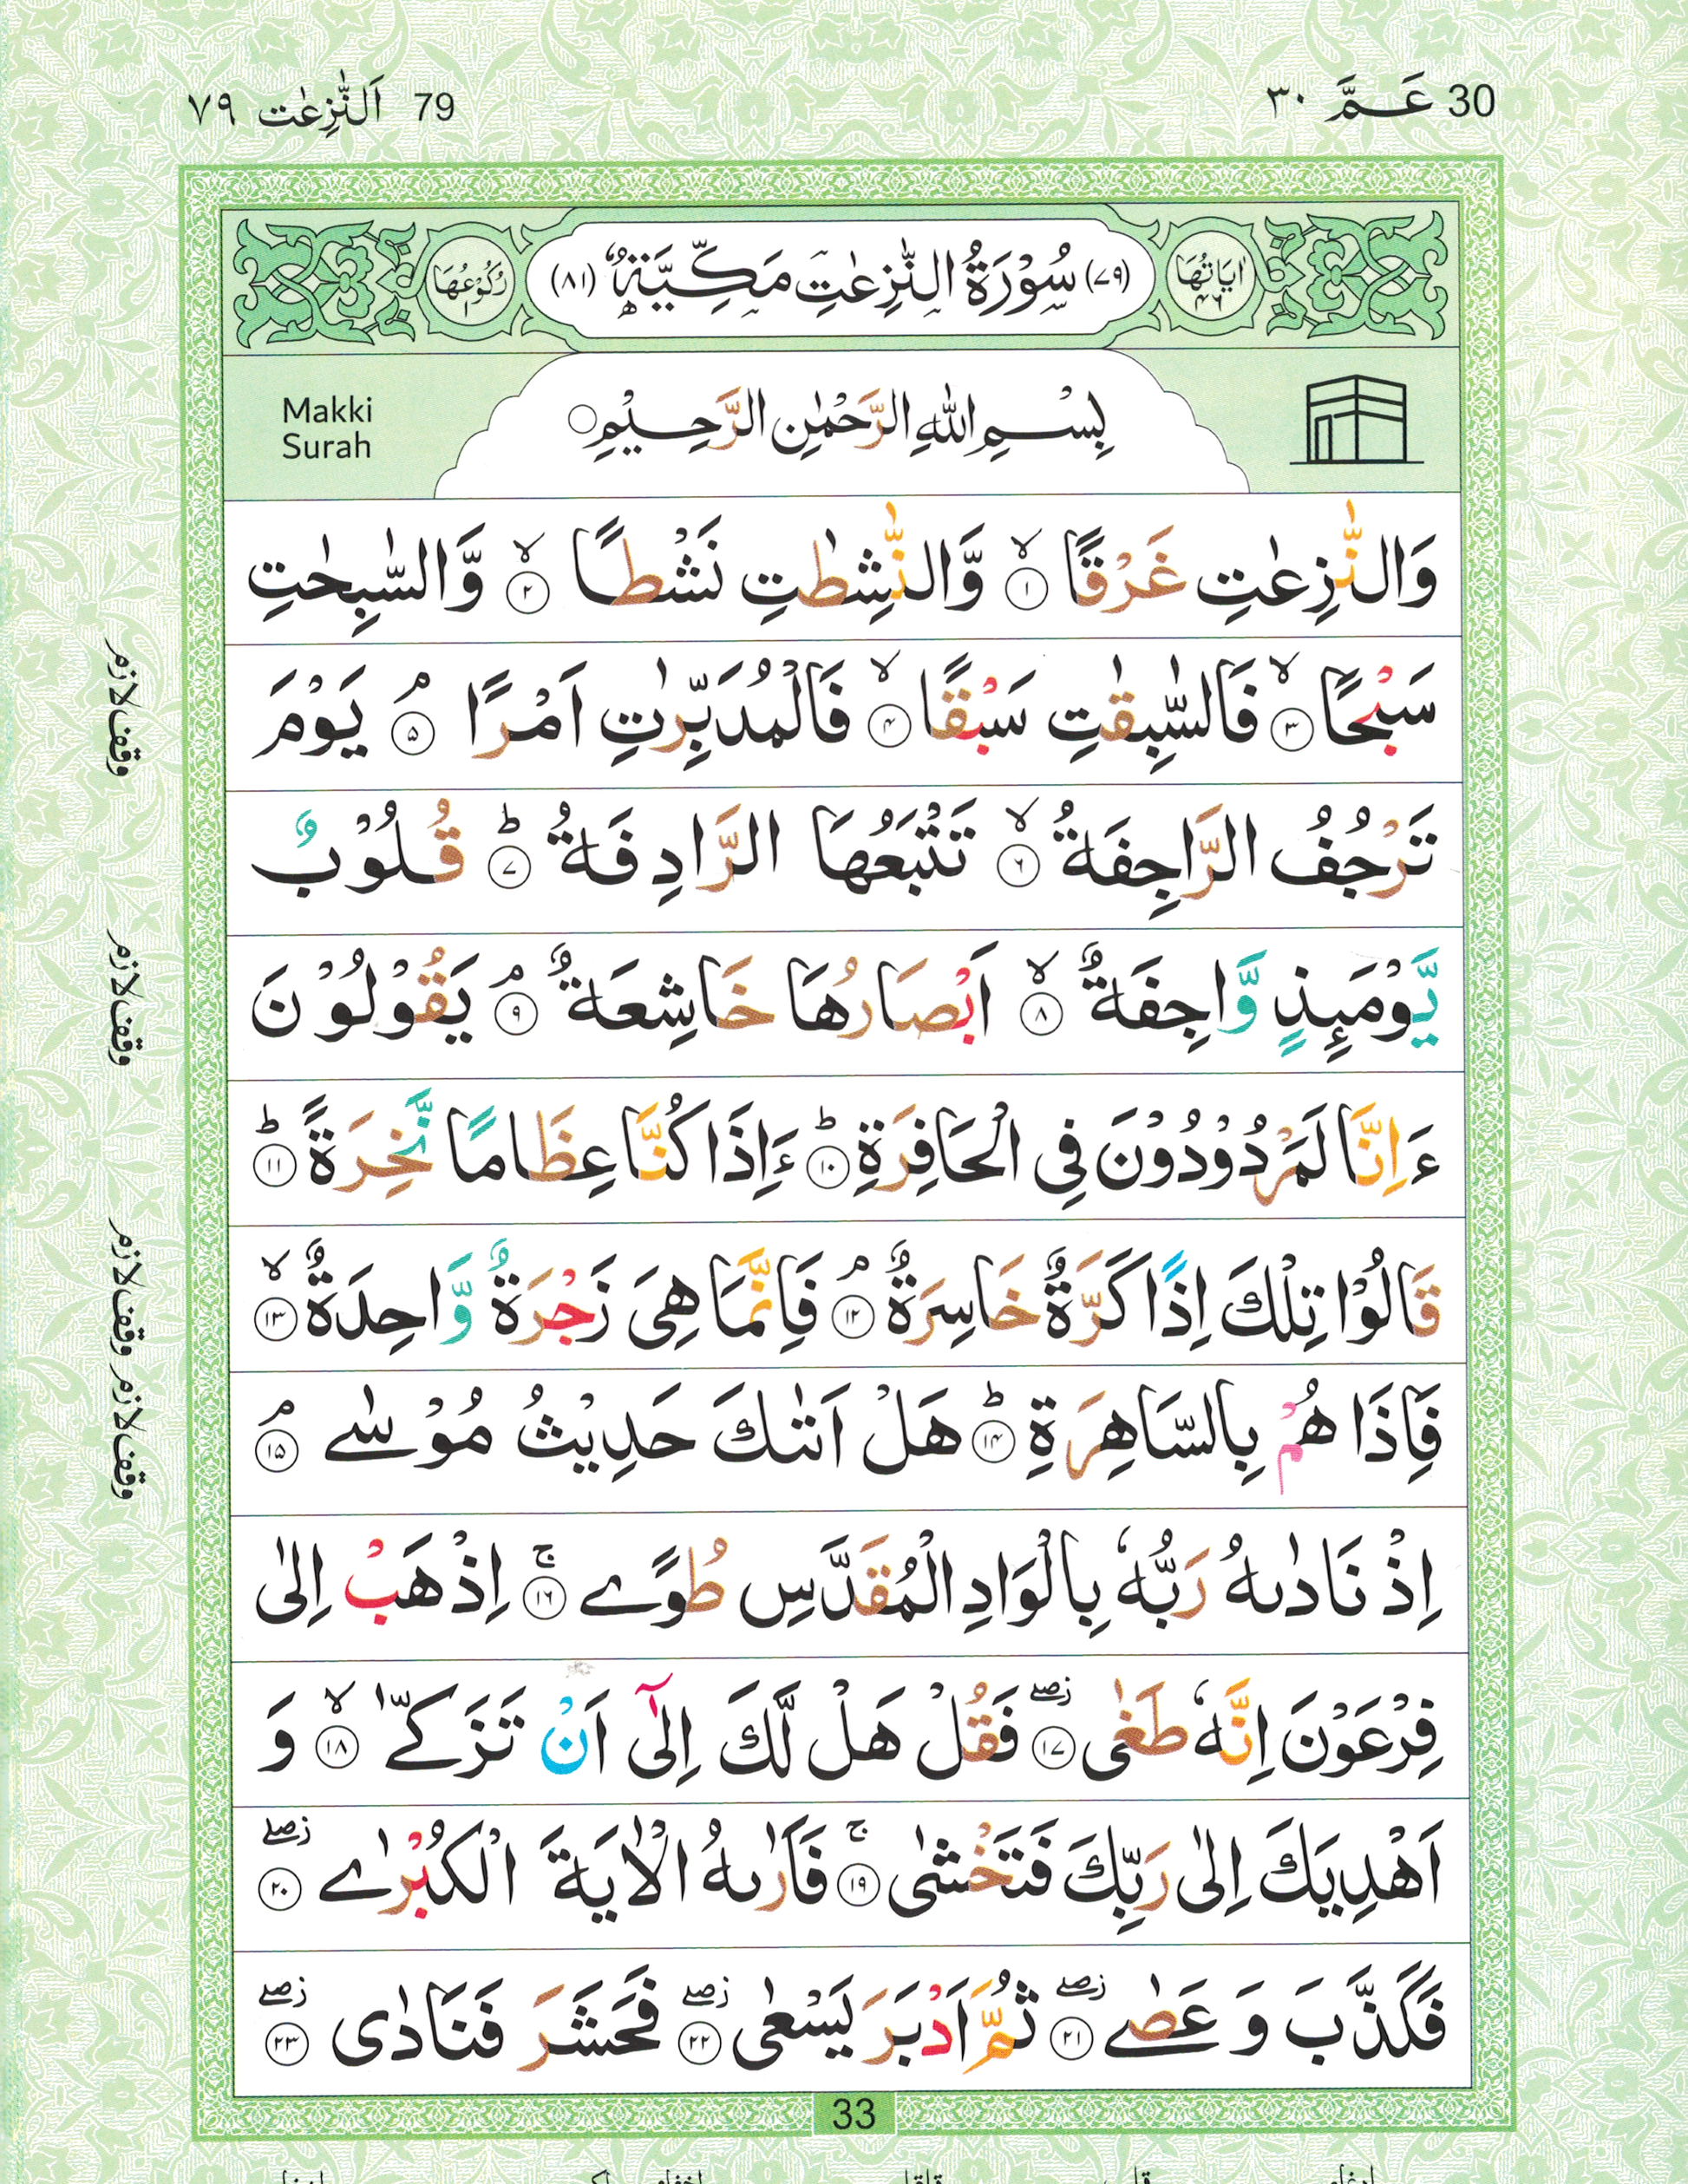 30 عَـمَّ ٣٠
79 اَلنّٰزِعٰت ٧٩
اٰيَاتُهَا ٤٦
(٧٩) سُوْرَةُ النّٰزِعٰتِ مَكِّيَّةٌ (٨١)
رُكُوْعُهَا
Makki
Surah
بِسْمِ اللّٰهِ الرَّحْمٰنِ الرَّحِيْمِ ○
وَالنّٰزِعٰتِ غَرْقًا ۙ﴿١﴾ وَّالنّٰشِطٰتِ نَشْطًا ۙ﴿٢﴾ وَّالسّٰبِحٰتِ
سَبْحًا ۙ﴿٣﴾ فَالسّٰبِقٰتِ سَبْقًا ۙ﴿٤﴾ فَالْمُدَبِّرٰتِ اَمْرًا ۘ﴿٥﴾ يَوْمَ
تَرْجُفُ الرَّاجِفَةُ ۙ﴿٦﴾ تَتْبَعُهَا الرَّادِفَةُ ؕ﴿٧﴾ قُلُوْبٌ
يَّوْمَئِذٍ وَّاجِفَةٌ ۙ﴿٨﴾ اَبْصَارُهَا خَاشِعَةٌ ۘ﴿٩﴾ يَقُوْلُوْنَ
ءَاِنَّا لَمَرْدُوْدُوْنَ فِى الْحَافِرَةِ ؕ﴿١٠﴾ ءَاِذَا كُنَّا عِظَامًا نَّخِرَةً ؕ﴿١١﴾
قَالُوْا تِلْكَ اِذًا كَرَّةٌ خَاسِرَةٌ ۘ﴿١٢﴾ فَاِنَّمَا هِىَ زَجْرَةٌ وَّاحِدَةٌ ۙ﴿١٣﴾
فَاِذَا هُمْ بِالسَّاهِرَةِ ؕ﴿١٤﴾ هَلْ اَتٰىكَ حَدِيْثُ مُوْسٰى ۘ﴿١٥﴾
اِذْ نَادٰىهُ رَبُّهٗ بِالْوَادِ الْمُقَدَّسِ طُوًى ۚ﴿١٦﴾ اِذْهَبْ اِلٰى
فِرْعَوْنَ اِنَّهٗ طَغٰى ۖز﴿١٧﴾ فَقُلْ هَلْ لَّكَ اِلٰٓى اَنْ تَزَكّٰى ۙ﴿١٨﴾ وَ
اَهْدِيَكَ اِلٰى رَبِّكَ فَتَخْشٰى ۚ﴿١٩﴾ فَاَرٰىهُ الْاٰيَةَ الْكُبْرٰى ۖز﴿٢٠﴾
فَكَذَّبَ وَ عَصٰى ۖز﴿٢١﴾ ثُمَّ اَدْبَرَ يَسْعٰى ۖز﴿٢٢﴾ فَحَشَرَ فَنَادٰى ۖز﴿٢٣﴾
وقف لازم
وقف لازم
وقف لازم وقف لازم
33